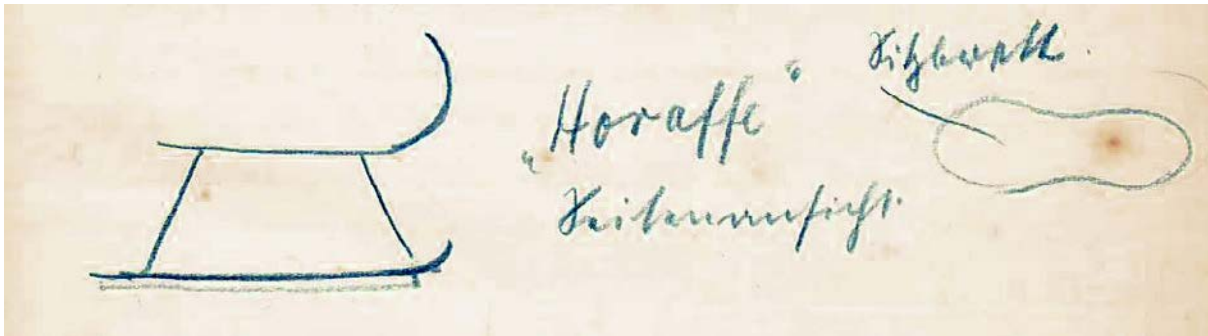 „Horaffe“
Seitenansicht.
Sitzbrett.